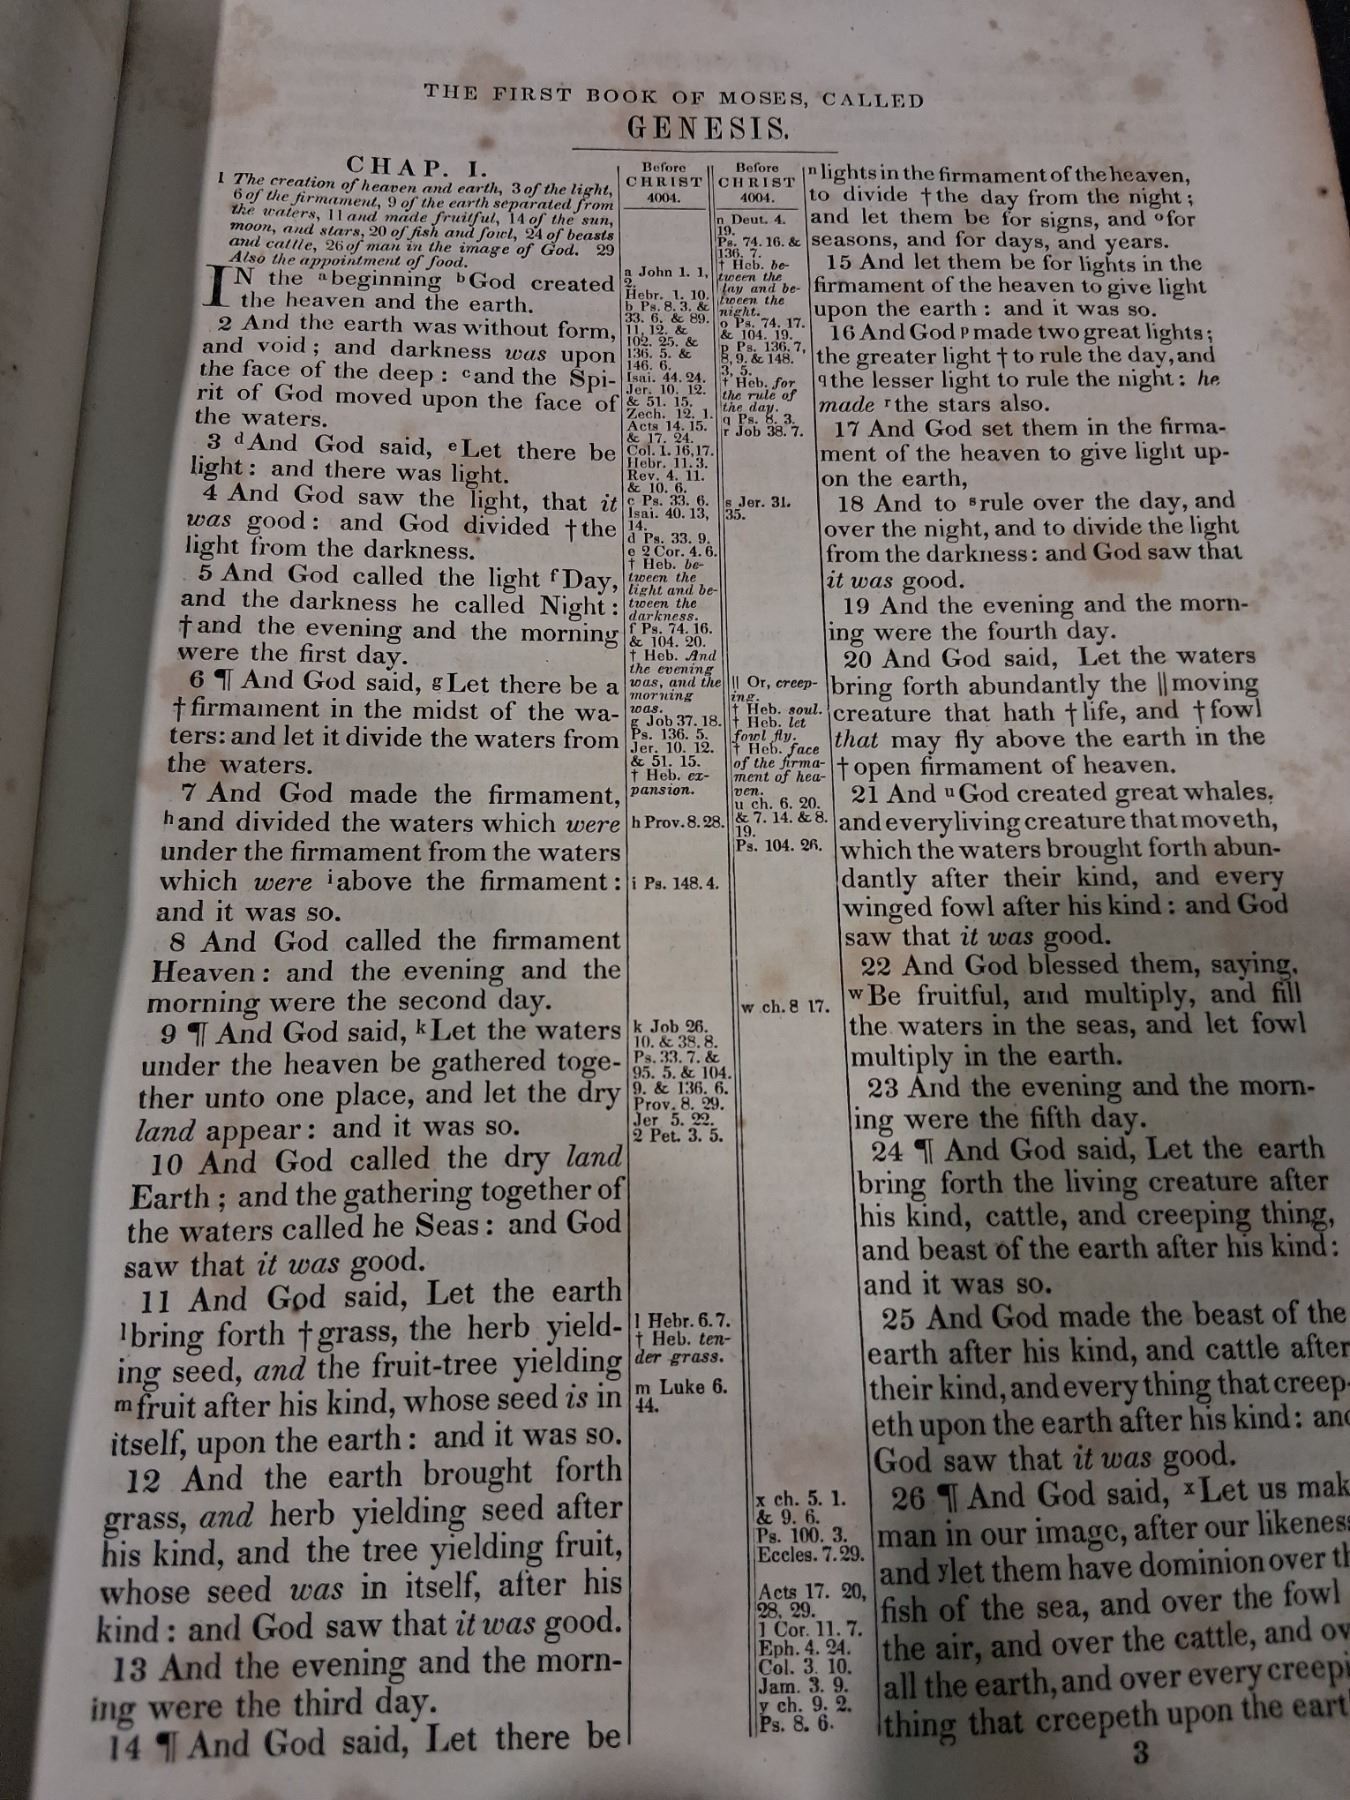 THE FIRST BOOK OF MOSES, CALLED
GENESIS.
CHAP. I.
1 The creation of heaven and earth, 3 of the light,
6 of the firmament, 9 of the earth separated from
the waters, 11 and made fruitful, 14 of the sun,
moon, and stars, 20 of fish and fowl, 24 of beasts
and cattle, 26 of man in the image of God. 29
Also the appointment of food.
IN the a beginning b God created
the heaven and the earth.
2 And the earth was without form,
and void; and darkness was upon
the face of the deep: c and the Spi-
rit of God moved upon the face of
the waters.
3 d And God said, e Let there be
light: and there was light.
4 And God saw the light, that it
was good: and God divided † the
light from the darkness.
5 And God called the light f Day,
and the darkness he called Night:
† and the evening and the morning
were the first day.
6 ¶ And God said, g Let there be a
† firmament in the midst of the wa-
ters: and let it divide the waters from
the waters.
7 And God made the firmament,
h and divided the waters which were
under the firmament from the waters
which were i above the firmament:
and it was so.
8 And God called the firmament
Heaven: and the evening and the
morning were the second day.
9 ¶ And God said, k Let the waters
under the heaven be gathered toge-
ther unto one place, and let the dry
land appear: and it was so.
10 And God called the dry land
Earth; and the gathering together of
the waters called he Seas: and God
saw that it was good.
11 And God said, Let the earth
l bring forth † grass, the herb yield-
ing seed, and the fruit-tree yielding
m fruit after his kind, whose seed is in
itself, upon the earth: and it was so.
12 And the earth brought forth
grass, and herb yielding seed after
his kind, and the tree yielding fruit,
whose seed was in itself, after his
kind: and God saw that it was good.
13 And the evening and the morn-
ing were the third day.
14 ¶ And God said, Let there be
Before
CHRIST
4004.
a John 1. 1,
2.
Hebr. 1. 10.
b Ps. 8. 3. &
33. 6. & 89.
11, 12. &
102. 25. &
136. 5. &
146. 6.
Isai. 44. 24.
Jer. 10. 12.
& 51. 15.
Zech. 12. 1.
Acts 14. 15.
& 17. 24.
Col. 1. 16, 17.
Hebr. 11. 3.
Rev. 4. 11.
& 10. 6.
c Ps. 33. 6.
Isai. 40. 13,
14.
d Ps. 33. 9.
e 2 Cor. 4. 6.
† Heb. be-
tween the
light and be-
tween the
darkness.
f Ps. 74. 16.
& 104. 20.
† Heb. And
the evening
was, and the
morning
was.
g Job 37. 18.
Ps. 136. 5.
Jer. 10. 12.
& 51. 15.
† Heb. ex-
pansion.
h Prov. 8. 28.
i Ps. 148. 4.
k Job 26.
10. & 38. 8.
Ps. 33. 7. &
95. 5. & 104.
9. & 136. 6.
Prov. 8. 29.
Jer 5. 22.
2 Pet. 3. 5.
l Hebr. 6. 7.
† Heb. ten-
der grass.
m Luke 6.
44.
Before
CHRIST
4004.
n Deut. 4.
19.
Ps. 74. 16. &
136. 7.
† Heb. be-
tween the
day and be-
tween the
night.
o Ps. 74. 17.
& 104. 19.
p Ps. 136. 7,
8, 9. & 148.
3, 5.
† Heb. for
the rule of
the day.
q Ps. 8. 3.
r Job 38. 7.
s Jer. 31.
35.
|| Or, creep-
ing.
† Heb. soul.
† Heb. let
fowl fly.
† Heb. face
of the firma-
ment of hea-
ven.
u ch. 6. 20.
& 7. 14. & 8.
19.
Ps. 104. 26.
w ch. 8 17.
x ch. 5. 1.
& 9. 6.
Ps. 100. 3.
Eccles. 7. 29.
Acts 17. 20,
28, 29.
1 Cor. 11. 7.
Eph. 4. 24.
Col. 3. 10.
Jam. 3. 9.
y ch. 9. 2.
Ps. 8. 6.
n lights in the firmament of the heaven,
to divide † the day from the night;
and let them be for signs, and o for
seasons, and for days, and years.
15 And let them be for lights in the
firmament of the heaven to give light
upon the earth: and it was so.
16 And God p made two great lights;
the greater light † to rule the day, and
q the lesser light to rule the night: he
made r the stars also.
17 And God set them in the firma-
ment of the heaven to give light up-
on the earth,
18 And to s rule over the day, and
over the night, and to divide the light
from the darkness: and God saw that
it was good.
19 And the evening and the morn-
ing were the fourth day.
20 And God said, Let the waters
bring forth abundantly the || moving
creature that hath † life, and † fowl
that may fly above the earth in the
† open firmament of heaven.
21 And u God created great whales,
and every living creature that moveth,
which the waters brought forth abun-
dantly after their kind, and every
winged fowl after his kind: and God
saw that it was good.
22 And God blessed them, saying,
w Be fruitful, and multiply, and fill
the waters in the seas, and let fowl
multiply in the earth.
23 And the evening and the morn-
ing were the fifth day.
24 ¶ And God said, Let the earth
bring forth the living creature after
his kind, cattle, and creeping thing,
and beast of the earth after his kind:
and it was so.
25 And God made the beast of the
earth after his kind, and cattle after
their kind, and every thing that creep-
eth upon the earth after his kind: and
God saw that it was good.
26 ¶ And God said, x Let us mak
man in our image, after our likeness
and y let them have dominion over th
fish of the sea, and over the fowl
the air, and over the cattle, and ov
all the earth, and over every creepi
thing that creepeth upon the eart
3